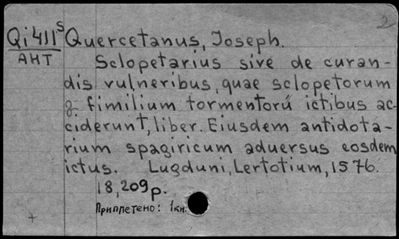 2
Qi411s Quercetanus, Joseph.
АНТ
Sclopetarius sive de curan-
dis vulneribus, quae sclopetorum
& fimilium tormentorū ictibus ac-
ciderunt, liber. Eiusdem antidota-
rium spagiricum aduersus eosdem
ictus. Lugduni, Lertotium, 1576.
18,209 p.
Приплетено: 1кн.
+